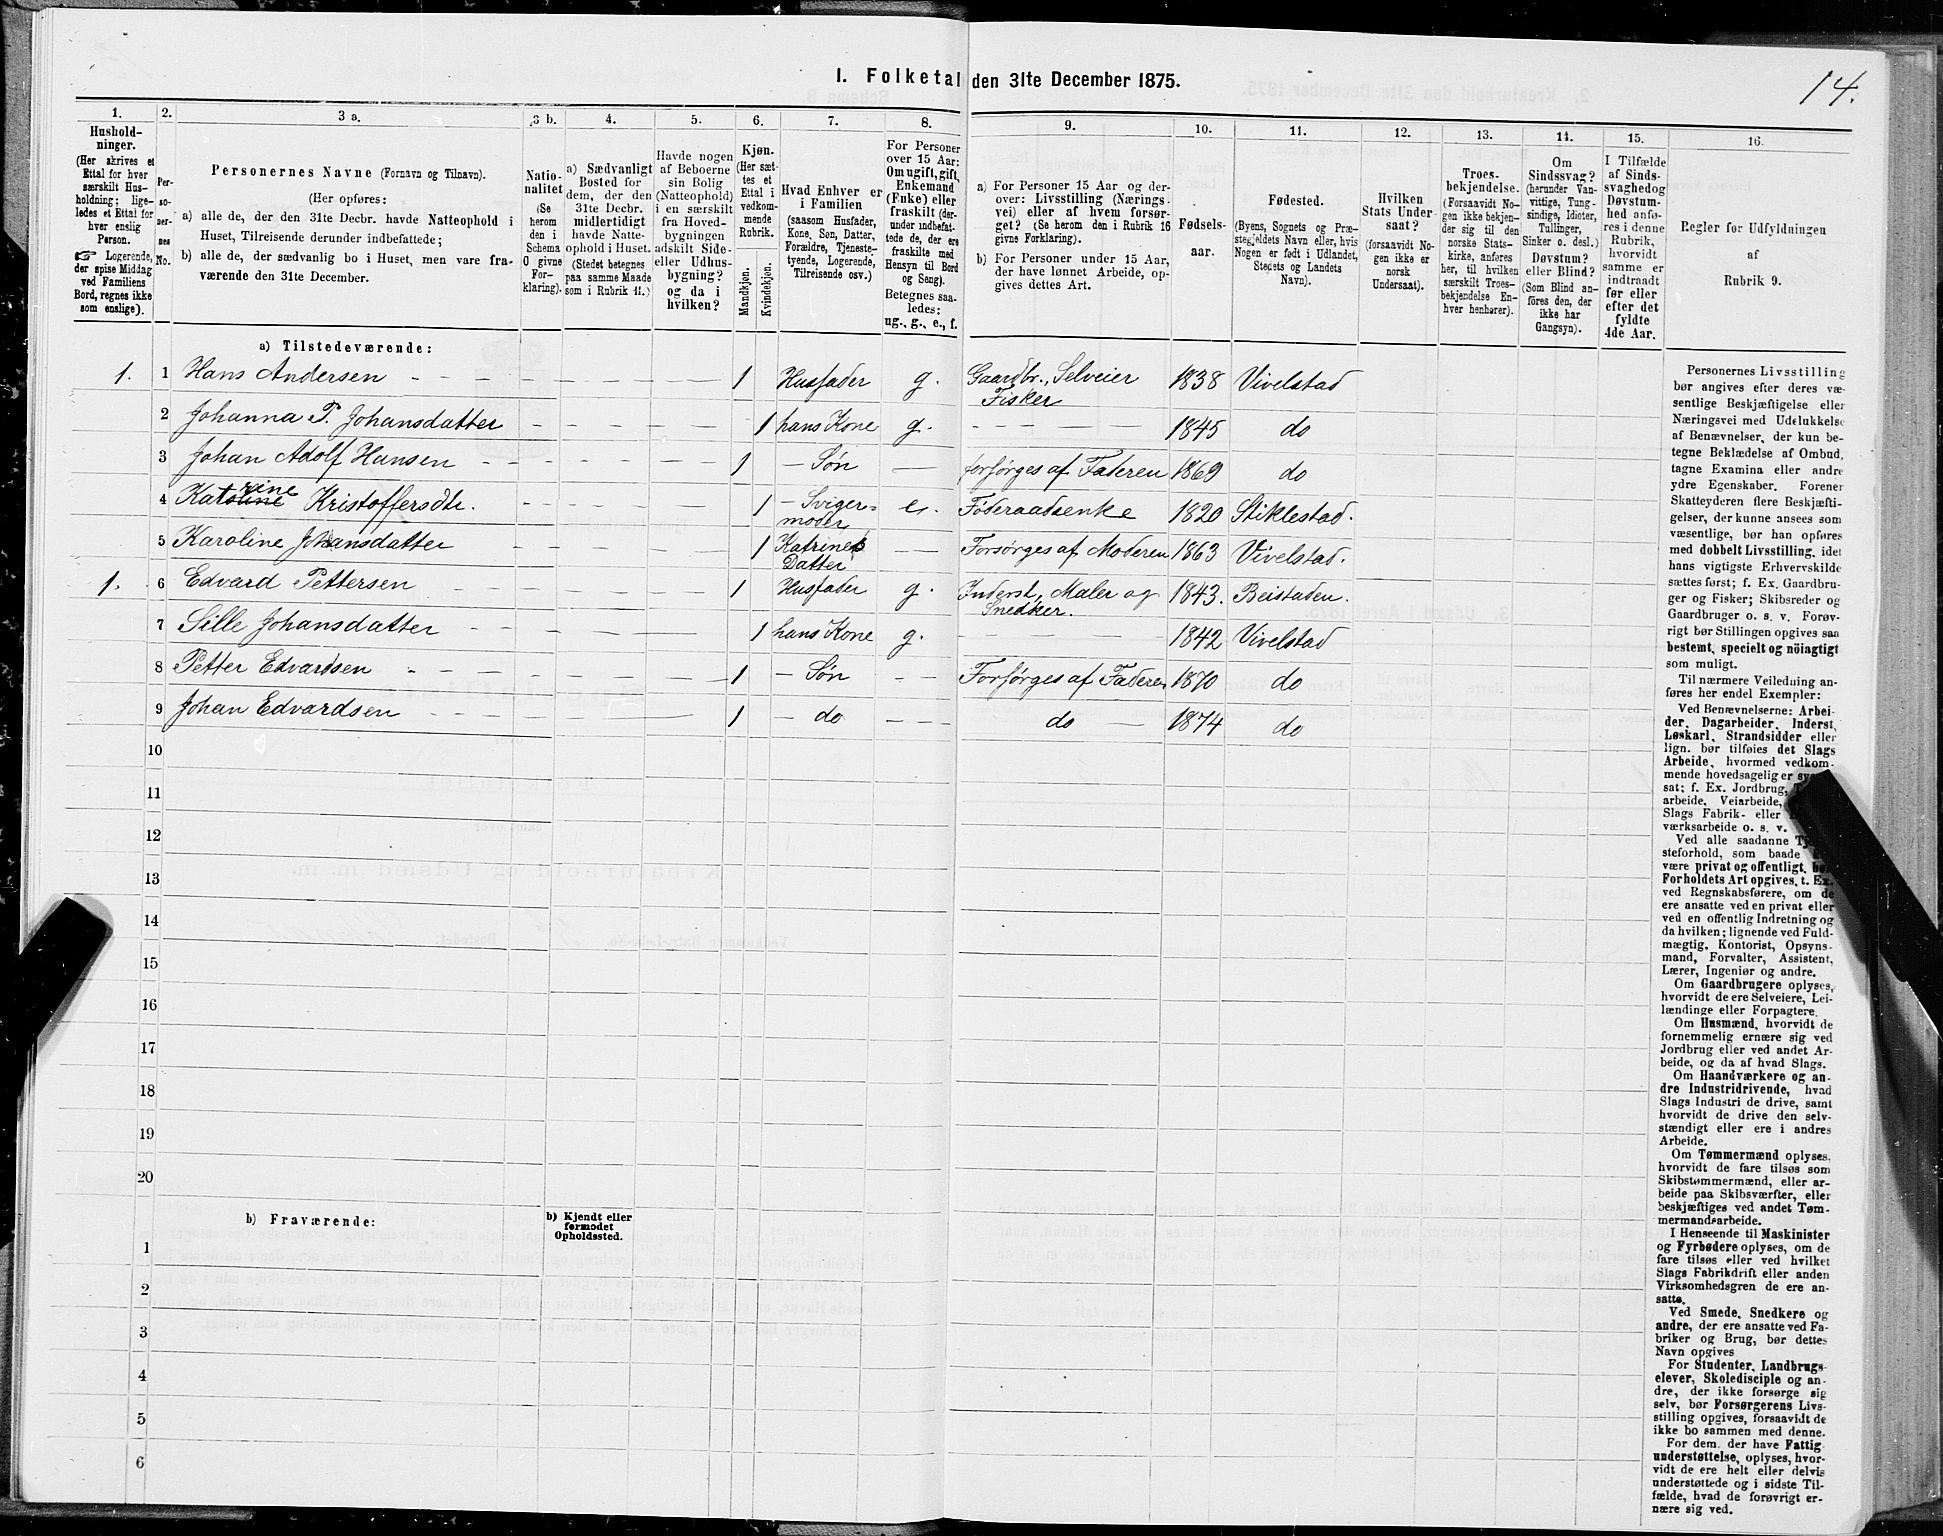 14.
I. Folketal den 31te December 1875.
1.
Hushold-
ninger.
(Her skrives et
Ettal for hver
særskilt Hus-
holdning; lige-
ledes et Ettal for
hver enslig
Person.
☞ Logerende,
der spise Middag
ved Familiens
Bord, regnes ikke
som enslige).
2.
Per-
so-
ner-
nes
No.
3 a.
Personernes Navne (Fornavn og Tilnavn).
(Her opføres:
a) alle de, der den 31te Decbr. havde Natteophold i
Huset, Tilreisende derunder indbefattede;
b) alle de, der sædvanlig bo i Huset, men vare fra-
værende den 31te December.
3 b.
Natio-
nalitet
(Se
herom
den i
Schema
O givne
For-
klaring).
4.
a) Sædvanligt
Bosted for
dem, der den
31te Decbr.
midlertidigt
havde Natte-
ophold i Huset.
(Stedet betegnes
paa samme Maade
som i Rubrik 11.)
5.
Havde nogen
af Beboerne
sin Bolig
(Natteophold)
i en særskilt
fra Hoved-
bygningen
adskilt Side-
eller Udhus-
bygning?
og da i
hvilken?
6.
Kjøn.
(Her sæt-
tes et
Ettal i
vedkom-
mende
Rubrik.
Mandkjøn.
Kvindekjøn.
7.
Hvad Enhver er
i Familien
(saasom Husfader,
Kone, Søn, Datter,
Forældre, Tjeneste-
tyende, Logerende,
Tilreisende osv.)
8.
For Personer
over 15 Aar:
Om ugift, gift,
Enkemand
(Enke) eller
fraskilt (der-
under indbefat-
tede de, der ere
fraskilte med
Hensyn til Bord
og Seng).
Betegnes saa-
ledes:
ug., g., e., f.
9.
a) For Personer 15 Aar og der-
over: Livsstilling (Nærings-
vei) eller af hvem forsør-
get? (Se herom den i Rubrik 16
givne Forklaring).
b) For Personer under 15 Aar,
der have lønnet Arbeide, op-
gives dettes Art.
10.
Fødsels-
aar.
11.
Fødested.
(Byens, Sognets og Præ-
stegjeldets Navn eller, hvis
Nogen er født i Udlandet,
Stedets og Landets
Navn).
12.
Hvilken
Stats Under-
saat?
(forsaavidt No-
gen ikke er
norsk
Undersaat).
13.
Troes-
bekjendelse.
(Forsaavidt No-
gen ikke bekjen-
der sig til den
norske Stats-
kirke, anføres
her, til hvilken
særskilt Troes-
bekjendelse En-
hver henhører).
14.
Om
Sindssvag?
(herunder Van-
vittige, Tung-
sindige, Idioter,
Tullinger,
Sinker o. desl.)
Døvstum?
eller Blind?
(Som Blind an-
føres den, der
ikke har
Gangsyn).
15.
I Tilfælde
af Sinds-
svaghed og
Døvstum-
hed anfø-
res i denne
Rubrik,
hvorvidt
samme er
indtraadt
før eller
efter det
fyldte
4de Aar.
16.
Regler for Udfyldningen
af
Rubrik 9.
a) Tilstedeværende:
1. 1 Hans Andersen 1 Husfader g. Gaardbr., Selveier 1838 Vivelstad
Fisker
2 Johanna P. Johansdatter 1 hans Kone g. 1845 do
3 Johan Adolf Hansen 1 Søn forsørges af Faderen 1869 do
rine
4 Katoline Kristoffersdtr. 1 Sviger= e. Føderaadsenke 1820 Stiklestad.
moder
5 Karoline Johansdatter 1 Katrines Forsørges af Moderen 1863 Vivelstad.
Datter
1. 6 Edvard Pettersen 1 Husfader g. Inderst, Maler og 1843. Beistaden.
Snedker.
7 Sille Johansdatter 1 hans Kone g. 1842 Vivelstad
8 Petter Edvardsen 1 Søn Forsørges af Faderen 1870 do
9 Johan Edvardsen 1 do do 1874 do
10
11
12
13
14
15
16
17
18
19
20
b) Fraværende:
b) Kjendt eller
formodet
Opholdssted.
1
2
3
4
5
6
Personernes Livsstilling
bør angives efter deres væ-
sentlige Beskjæftigelse eller
Næringsvei med Udelukkelse
af Benævnelser, der kun be-
tegne Beklædelse af Ombud,
tagne Examina eller andre
ydre Egenskaber. Forener
Skatteyderen flere Beskjæfti-
gelser, der kunne ansees som
væsentlige, bør han opføres
med dobbelt Livsstilling, idet
hans vigtigste Erhvervskilde
sættes først; f. Ex. Gaardbru-
ger og Fisker; Skibsreder og
Gaardbruger o. s. v. Forøv-
rigt bør Stillingen opgives saa
bestemt, specielt og nöiagtigt
som muligt.
Til nærmere Veiledning an-
føres her endel Exempler:
Ved Benævnelserne: Arbei-
der, Dagarbeider, Inderst,
Løskarl, Strandsidder eller
lign. bør tilføies det Slags
Arbeide, hvormed vedkom-
mende hovedsagelig er
sat; f. Ex. Jordbrug,
arbeide, Veiarbeide,
Slags Fabrik- eller
værksarbeide o. s. v.
Ved alle saadanne
steforhold, som baade
være privat og offentligt, bør
Forholdets Art opgives, t. Ex.
ved Regnskabsførere, om de
ere ansatte ved en privat eller
ved en offentlig Indretning og
da hvilken; lignende ved Fuld-
mægtig, Kontorist, Opsyns-
mand, Forvalter, Assistent,
Lærer, Ingeniør og andre.
Om Gaardbrugere oplyses,
hvorvidt de ere Selveiere, Lei-
lændinge eller Forpagtere.
Om Husmænd, hvorvidt de
fornemmelig ernære sig ved
Jordbrug eller ved andet Ar-
beide, og da af hvad Slags.
Om Haandværkere og an-
dre Industridrivende, hvad
Slags Industri de drive, samt
hvorvidt de drive den selv-
stændigt eller ere i andres
Arbeide.
Om Tømmermænd oplyses,
hvorvidt de fare tilsøs som
Skibstømmermænd, eller ar-
beide paa Skibsværfter, eller
beskjæftiges ved andet Tøm-
mermandsarbeide.
I Henseende til Maskinister
og Fyrbødere oplyses, om de
fare tilsøs eller ved hvilket
Slags Fabrikdrift eller anden
Virksomhedsgren de ere an-
satte.
Ved Smede, Snedkere og
andre, der ere ansatte ved Fa-
briker og Brug, bør dettes
Navn opgives
For Studenter, Landbrugs-
elever, Skoledisciple og an-
dre, der ikke forsørge sig
selv, bør Forsørgerens Livs-
stilling opgives, forsaavidt de
ikke bo sammen med denne.
For dem, der have Fattig-
understøttelse, oplyses, hvor-
vidt de ere helt eller delvis
understøttede og i sidste Til-
fælde, hvad de forøvrigt er-
nære sig ved.